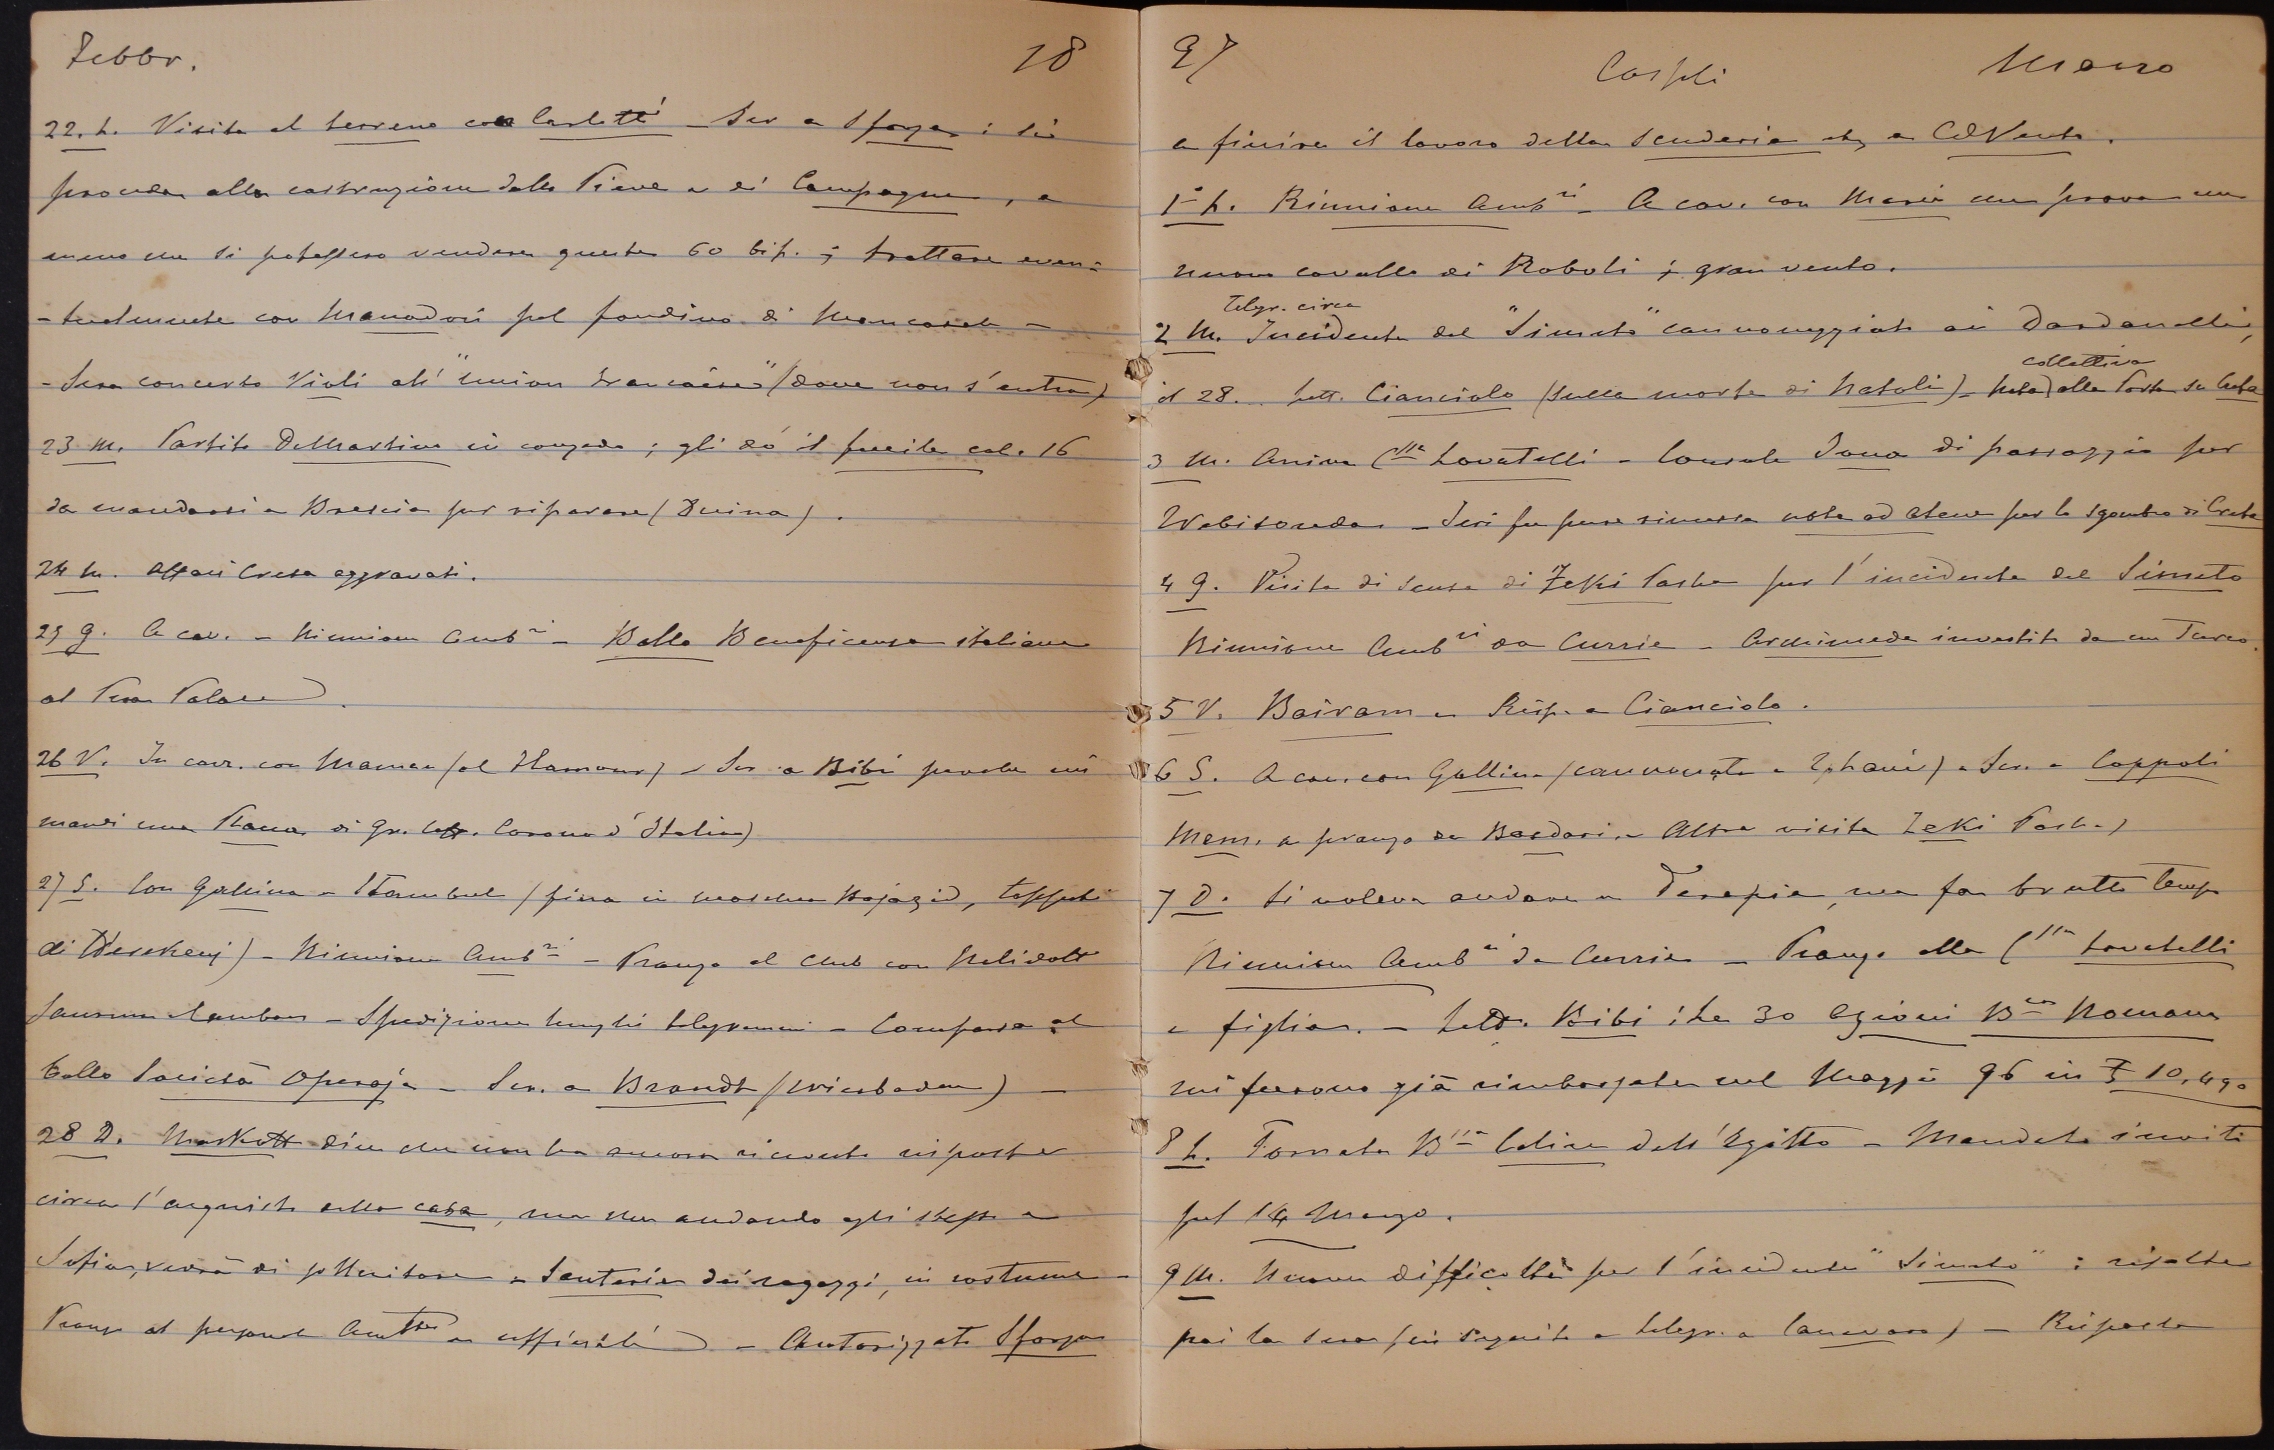 Febbr. 18
22. L. Visita al terreno con Carlotti – Scr. a Sforza: si
proceda alla costruzione della Pieve e di Campagne, a
meno che si potessero vendere queste 60 bif.; trattare even=
=tualmente con Manodori pel fondino di Mancasale –
– Sera concerto Violi all' "Union Française" (dove non s'entra)
23 M. Partito DeMartino in congedo; gli dò il fucile cal. 16
da mandarsi a Brescia per riparare
24 M. Affari Creta aggravati.
25 G. A cav. – Riunione Amb.ri – Ballo Beneficenza italiana
al Pera Palace.
26 V. In carr. con Maman – Scr. a Bibi perchè mi
mandi una Placca di Gr. Uff. Corona d'Italia)
27 S. Con Gallina a Stambul (fino in moschea Bajazid, tappeti
di – Riunione Amb.ri – Pranzo al Club con Nelidoff
– Spedizione lunghi telegrammi – Comparsa al
ballo Società Operaja – Scr. a Brandt (Wiesbaden) –
28 D. dice che non ha ancora ricevuto risposta
circa l'acquisto della casa, ma che andando egli stesso a
Sofia, vedrà di sollecitare – dei ragazzi, in costume –
Pranzo al personale – Autorizzato Sforza
97 Cospli Marzo
a finire il lavoro della scuderia etc, a CdVento.
1° L. Riunione Amb.ri – A cav. con Maria che prova un
nuovo cavallo di Roboli; gran vento.
Telegr. circa
2 M. Incidente del "Simeto" cannoneggiato ai Dardanelli,
collettiva
il 28. – Lett. Cianciolo (sulla morte di Natoli) – Nota alla Porta su Creta
3 M. Arriva C.ssa Lovatelli – Console di passaggio per
Trebisonda – Ieri fu pure rimessa nota ad Atene per lo sgombro di Creta
4 G. Visita di scusa di Zeki Pasha per l'incidente del Simeto
Riunione Amb.ri da Currie – Archimede investito da un Turco.
5 V. Bairam – Risp. a Cianciolo.
6 S. A cav. con Gallina – Scr. a Coppoli
Mem. a pranzo da – Altra visita Zeki Pasha
7 D. Si voleva andare a Terapia, ma fa brutto tempo
Riunione Amb.ri da Currie – Pranzo alla C.ssa Lovatelli
e figlia. – Bibi: Le 30 Azioni B.ca Romana
mi furono già rimborsate nel Maggio 96 in
8 L. Tornata B.ssa dall'Egitto – Mandato inviti
pel 14 Marzo.
9 M. Nuove difficoltà per l'incidente "Simeto": risolte
poi la sera (in seguito a telegr. a Canevaro) – Risposta